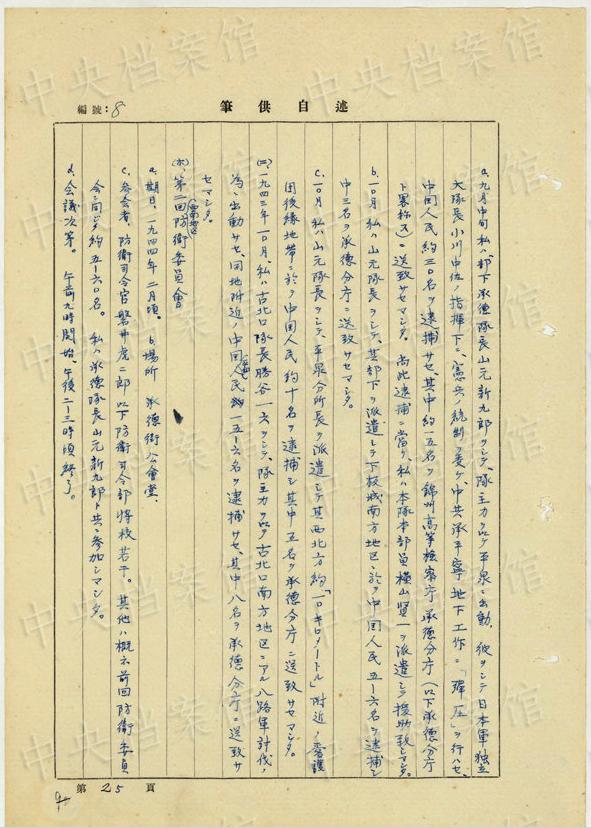 中央档案馆
編號：8
筆供自述
a. 九月中旬私ハ部下承德隊長山元新九郎ヲシテ、隊主力ヲ以テ平泉ニ出動、彼ヲシテ日本軍独立
大隊長小川中佐ノ指揮下ニ、憲兵ノ統制ヲ受ケ、中共承平寧地下工作ニ「弾圧」ヲ行ハセ、
中国人民約三〇名ヲ逮捕サセ、其中約一五名ヲ錦州高等検察庁承德分庁(以下承德分庁
ト畧称ス)ニ送致サセマシタ。尚此逮捕ニ當リ、私ハ本隊本部員横山賢一ヲ派遣シテ援助致シマシタ。
b. 一〇月私ハ山元隊長ヲシテ、其部下ヲ派遣シテ下板城南方地区ニ於テ中国人民五—六名ヲ逮捕シ
中三名ヲ承德分庁ニ送致サセマシタ。
c. 一〇月、私ハ山元隊長ヲシテ、平泉分所長ヲ派遣シテ其西北方約「一〇キロメートル」附近ノ
囲後縁地帯ニ於テ中国人民約十名ヲ逮捕シ其中五名ヲ承德分庁ニ送致サセマシタ。
(ニ)、一九四三年一〇月、私ハ古北口隊長勝谷一六ヲシテ、隊主力ヲ以テ古北口南方地区ニアル八路軍討伐ノ
為ニ出動サセ、同地附近ノ中国人民約一五—六名ヲ逮捕サセ、其中八名ヲ承德分庁ニ送致サ
セマシタ。
(ホ)、第二回防衛委員會
a. 期日、一九四四年二月頃。 b. 場所 承德街公會堂。
c. 参会者、防衛司令官磐井虎二郎以下防衛司令部将校若干。其他ハ概ネ前回防衛委員
会ト同ジク約五—六〇名。私ハ承德隊長山元新九郎ト共ニ参加シマシタ。
d. 会議次第。午前九時開始、午後二—三時頃終了。
第 25 頁